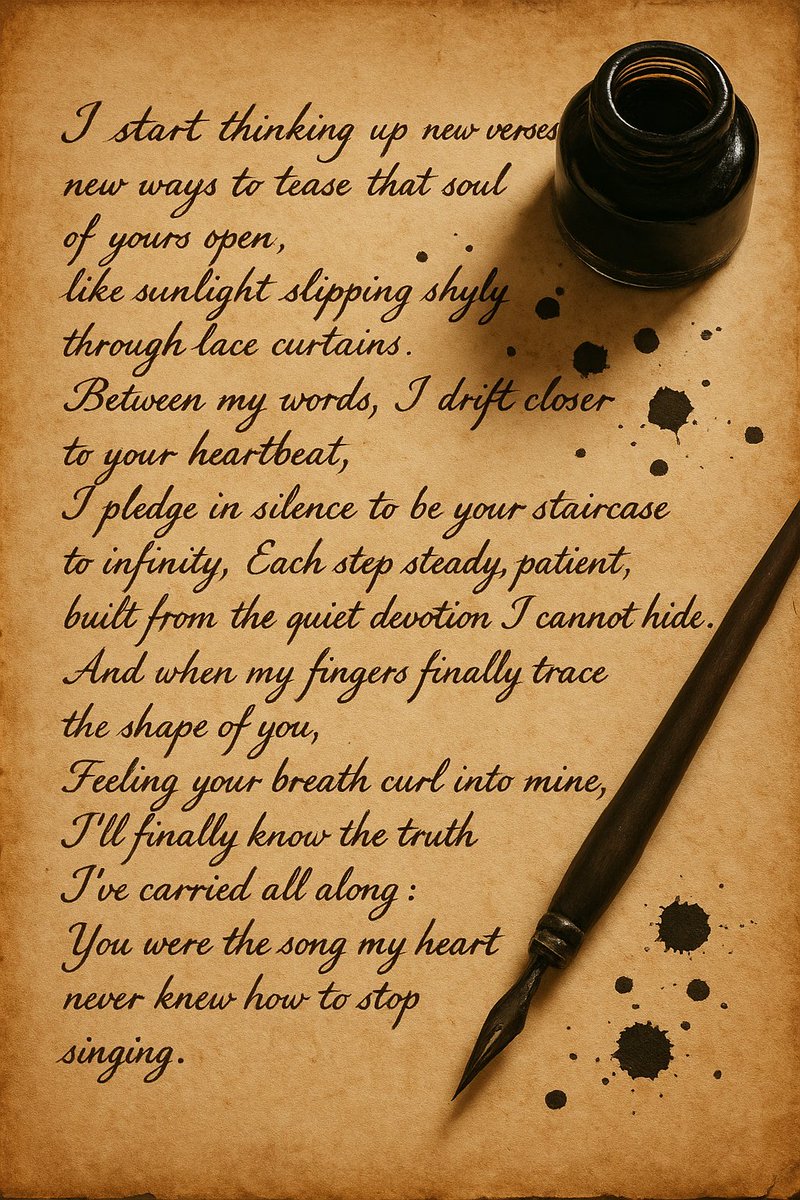 I start thinking up new verses
new ways to tease that soul
of yours open,
like sunlight slipping shyly
through lace curtains.
Between my words, I drift closer
to your heartbeat,
I pledge in silence to be your staircase
to infinity, Each step steady, patient,
built from the quiet devotion I cannot hide.
And when my fingers finally trace
the shape of you,
Feeling your breath curl into mine,
I'll finally know the truth
I've carried all along:
You were the song my heart
never knew how to stop
singing.